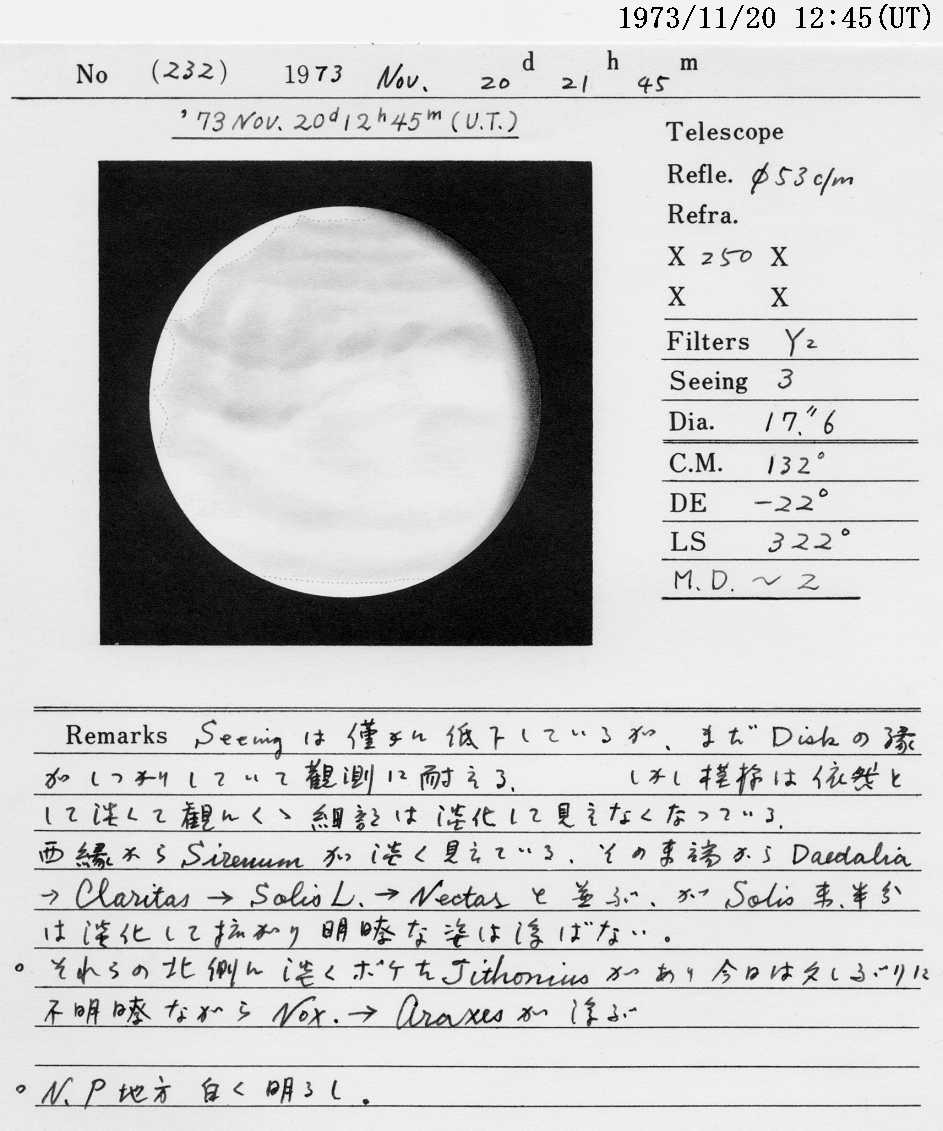 1973/11/20 12:45(UT)
No (232) 1973 Nov. 20 d 21 h 45 m
'73 Nov. 20d12h45m (U.T.)
Telescope
Refle. φ53c/m
Refra.
X 250 X
X X
Filters Y2
Seeing 3
Dia. 17."6
C.M. 132°
DE -22°
LS 322°
M.D. ~ 2
Remarks Seeingは僅かに低下しているが、まだDiskの縁
がしっかりしていて観測に耐える. しかし模様は依然と
して淡くて観にくゝ細部は淡化して見えなくなっている.
西縁からSirenumが淡く見えている. その東端からDaedalia
→ Claritas → Solis L. → Nectasと並ぶ. がSolis東半分
は淡化して拡がり明瞭な姿は浮ばない。
○ それらの北側に淡くボケたTithoniusがあり今日は久しぶりに
不明瞭ながらNox. → Araxesが浮ぶ
○ N.P地方 白く明るし.